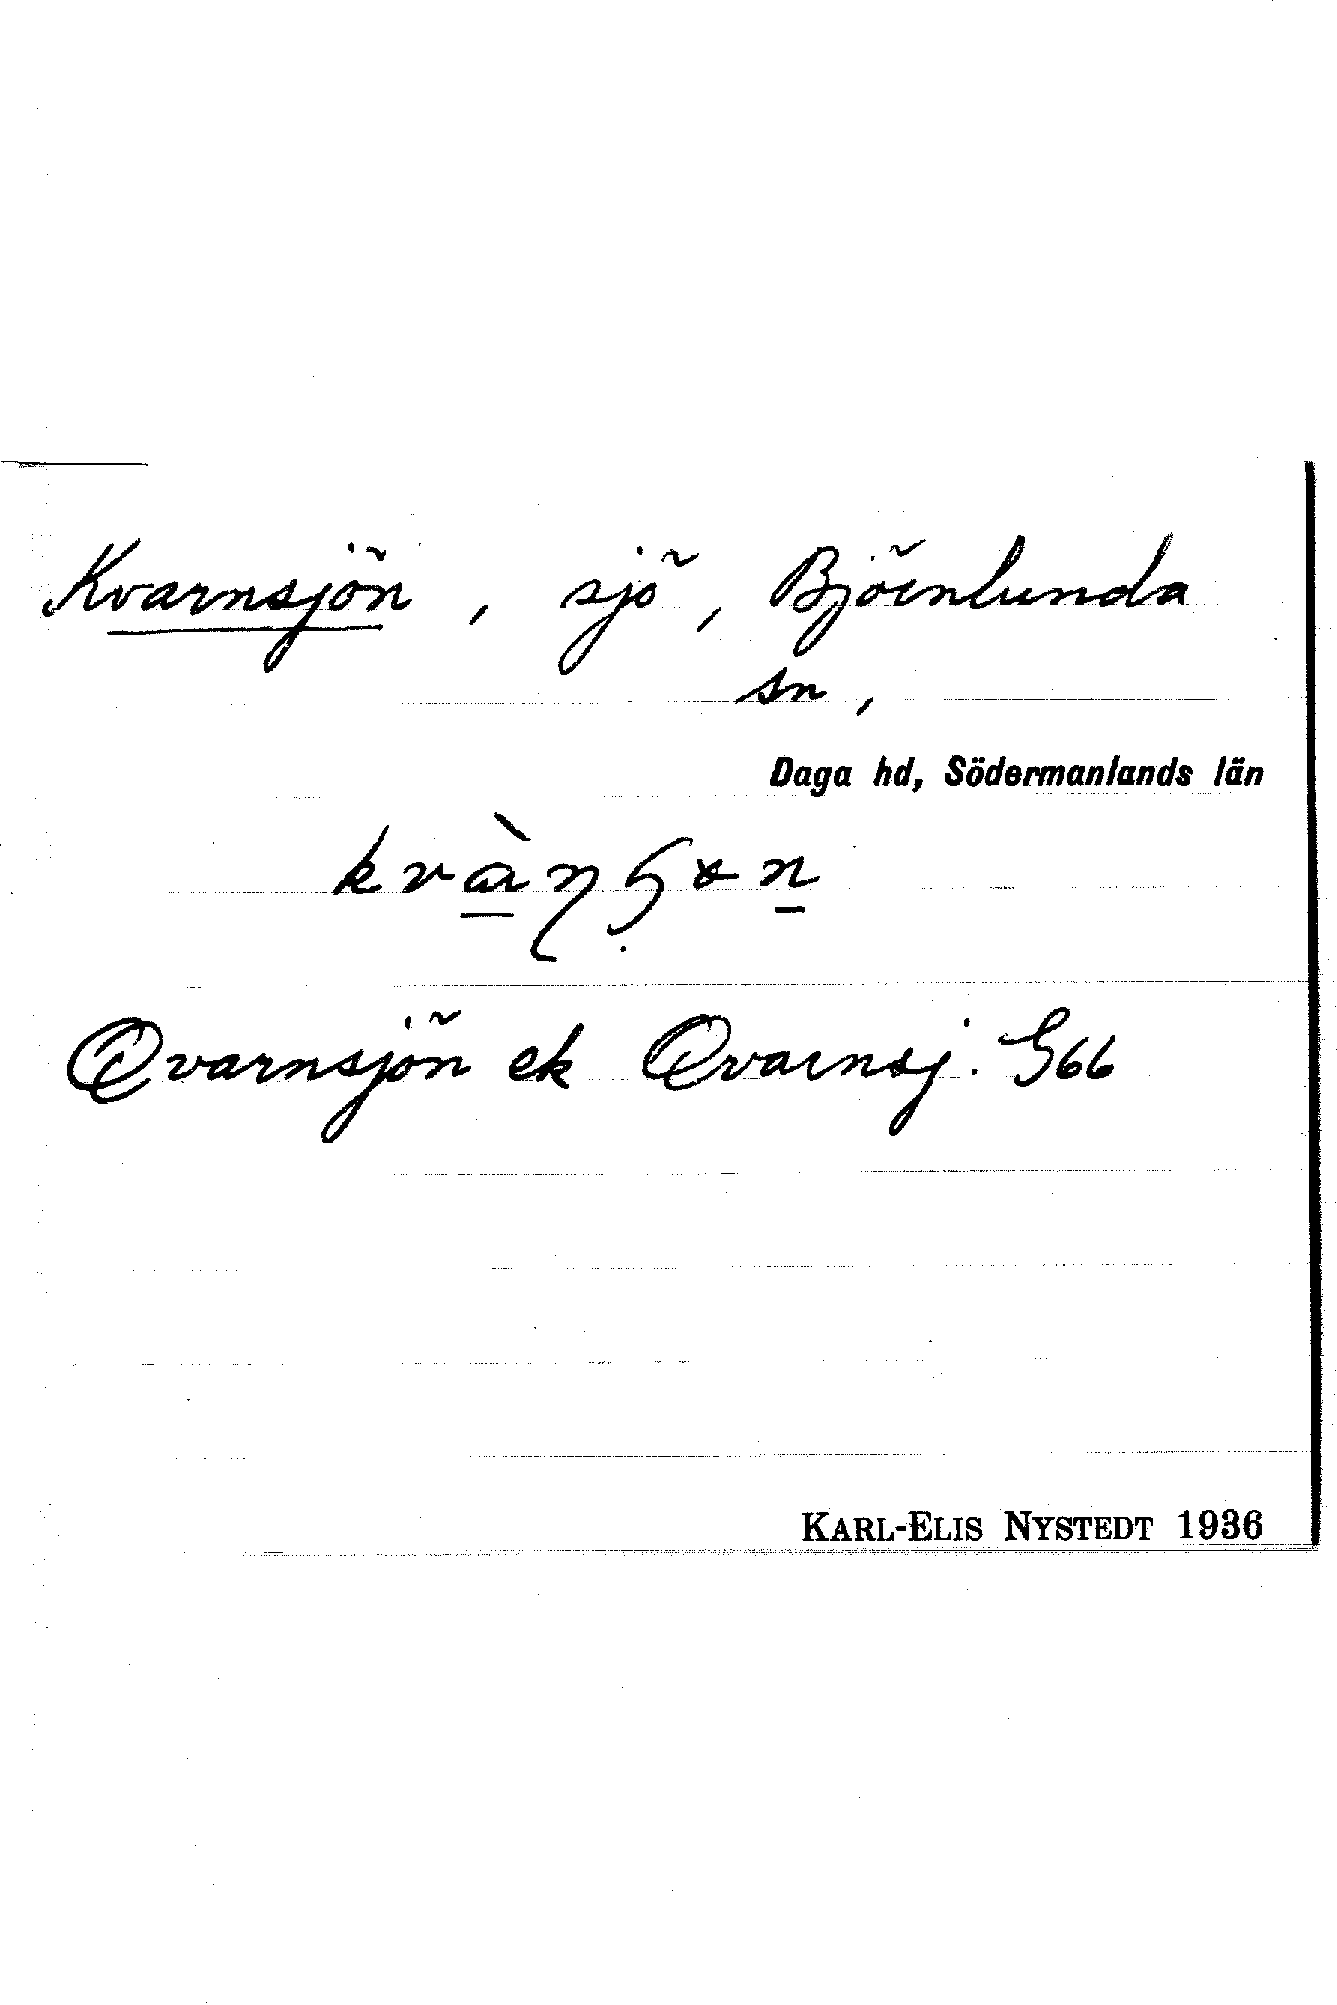 Kvarnsjön, sjö, Björnlunda
sn,
Daga hd, Södermanlands län
Qvarnsjön ek Qvarnsj. G66
KARL-ELIS NYSTEDT 1936